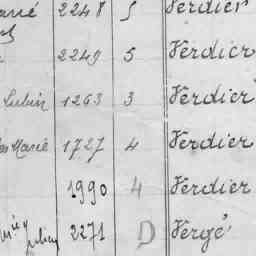 2248 5 Verdier
2249 5 Verdier
Lubin 1263 3 Verdier
Marie 1727 4 Verdier
1990 4 Verdier
2271 D Vergé